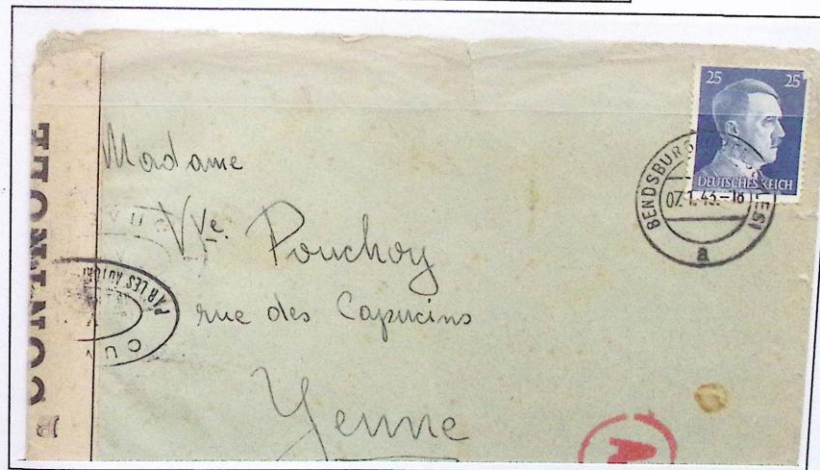 25 25
DEUTSCHES REICH
BENDSBURG
07.1.43.-18
a
Madame
Vve. Pouchoy
rue des Capucins
Yenne
CONTRÔLE
OUV
PAR LES AUTORI
A